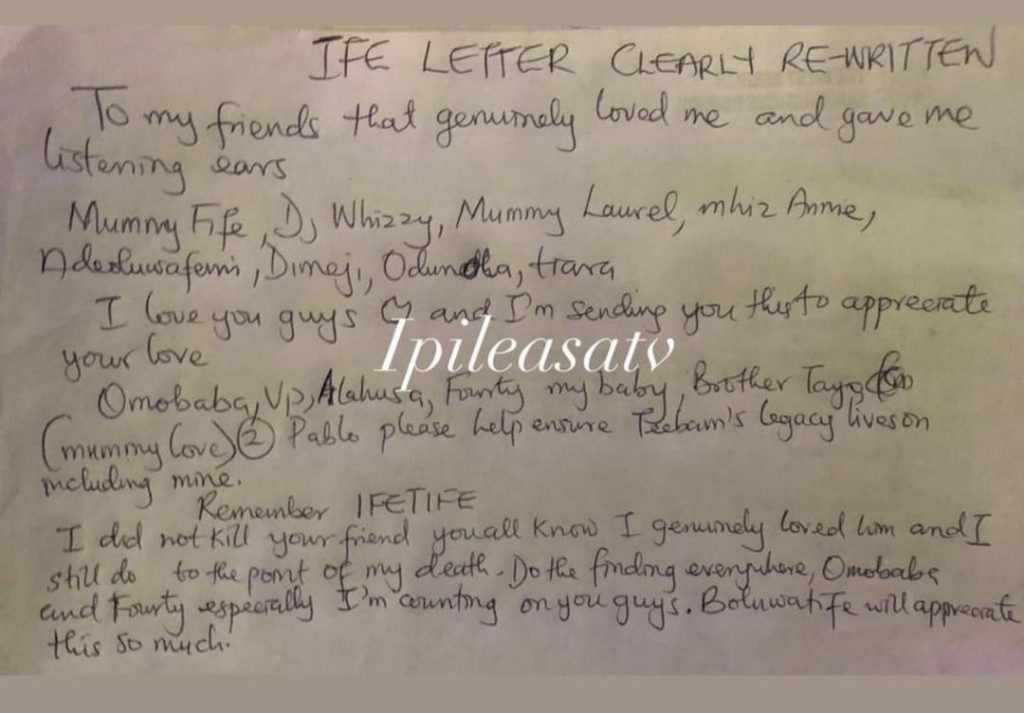 IFE LETTER CLEARLY RE-WRITTEN
To my friends that genuinely loved me and gave me
listening ears
Mummy Fife, Dj Whizzy, Mummy Laurel, mhiz Annie,
Aderoluwafemi, Dimeji, trara
I love you guys and I'm sending you this to appreciate
your love
Ipileasatv
Omobaba, Vp, Alahusa, Fourty my baby, Brother Tayo
(mummy love) 2 Pablo please help ensure legacy lives on
including mine.
Remember IFETIFE
I did not kill your friend you all know I genuinely loved him and I
still do to the point of my death. Do the finding everywhere, Omobaba
and Fourty especially I'm counting on you guys. Boluwatife will appreciate
this so much.